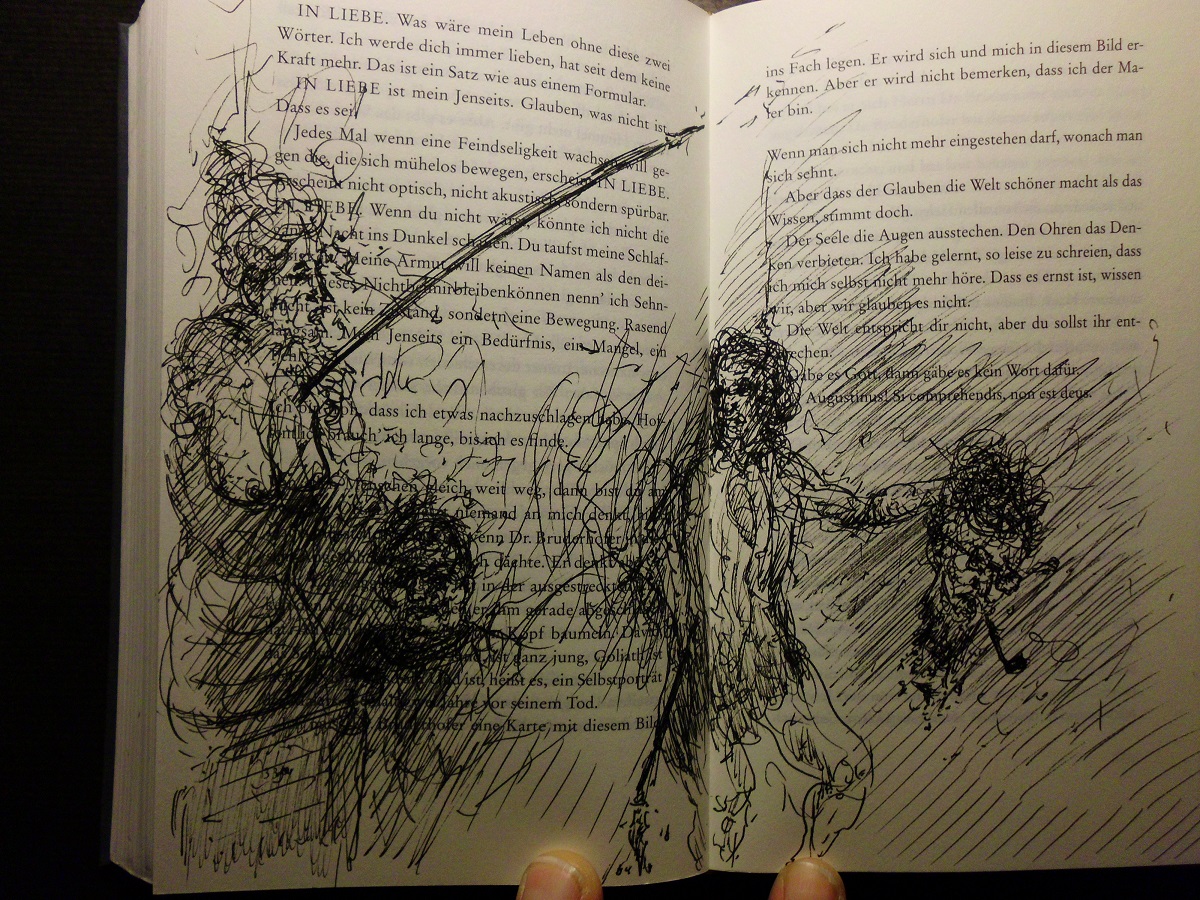 IN LIEBE. Was wäre mein Leben ohne diese zwei
Wörter. Ich werde dich immer lieben, hat seit dem keine
Kraft mehr. Das ist ein Satz wie aus einem Formular.
IN LIEBE ist mein Jenseits. Glauben, was nicht ist.
Dass es sei.
Jedes Mal wenn eine Feindseligkeit wachsen will ge-
gen die, die sich mühelos bewegen, erscheint IN LIEBE.
Erscheint nicht optisch, nicht akustisch, sondern spürbar.
IN LIEBE. Wenn du nicht wärst, könnte ich nicht die
Nacht ins Dunkel schauen. Du taufst meine Schlaf-
Meine Armut will keinen Namen als den dei-
nen. Dieses Nichtbeimirbleibenkönnen nenn' ich Sehn-
sucht. Ist kein Zustand, sondern eine Bewegung. Rasend
langsam. Mein Jenseits ein Bedürfnis, ein Mangel, ein
Ich bin froh, dass ich etwas nachzuschlagen habe. Hof-
fentlich brauch' ich lange, bis ich es finde.
Menschen gleich weit weg, dann bist du am
niemand an mich denkt,
wenn Dr. Bruderhofer
dächte. Er denkt
in der ausgestreckten
er ihm gerade abgeschlagen
Kopf baumeln. David
ist ganz jung, Goliath ist
Und ist, heißt es, ein Selbstporträt
Jahre vor seinem Tod.
Bruderhofer eine Karte mit diesem Bild
ins Fach legen. Er wird sich und mich in diesem Bild er-
kennen. Aber er wird nicht bemerken, dass ich der Ma-
ler bin.
Wenn man sich nicht mehr eingestehen darf, wonach man
sich sehnt.
Aber dass der Glauben die Welt schöner macht als das
Wissen, stimmt doch.
Der Seele die Augen ausstechen. Den Ohren das Den-
ken verbieten. Ich habe gelernt, so leise zu schreien, dass
ich mich selbst nicht mehr höre. Dass es ernst ist, wissen
wir, aber wir glauben es nicht.
Die Welt entspricht dir nicht, aber du sollst ihr ent-
sprechen.
Gäbe es Gott, dann gäbe es kein Wort dafür.
Augustinus: Si comprehendis, non est deus.